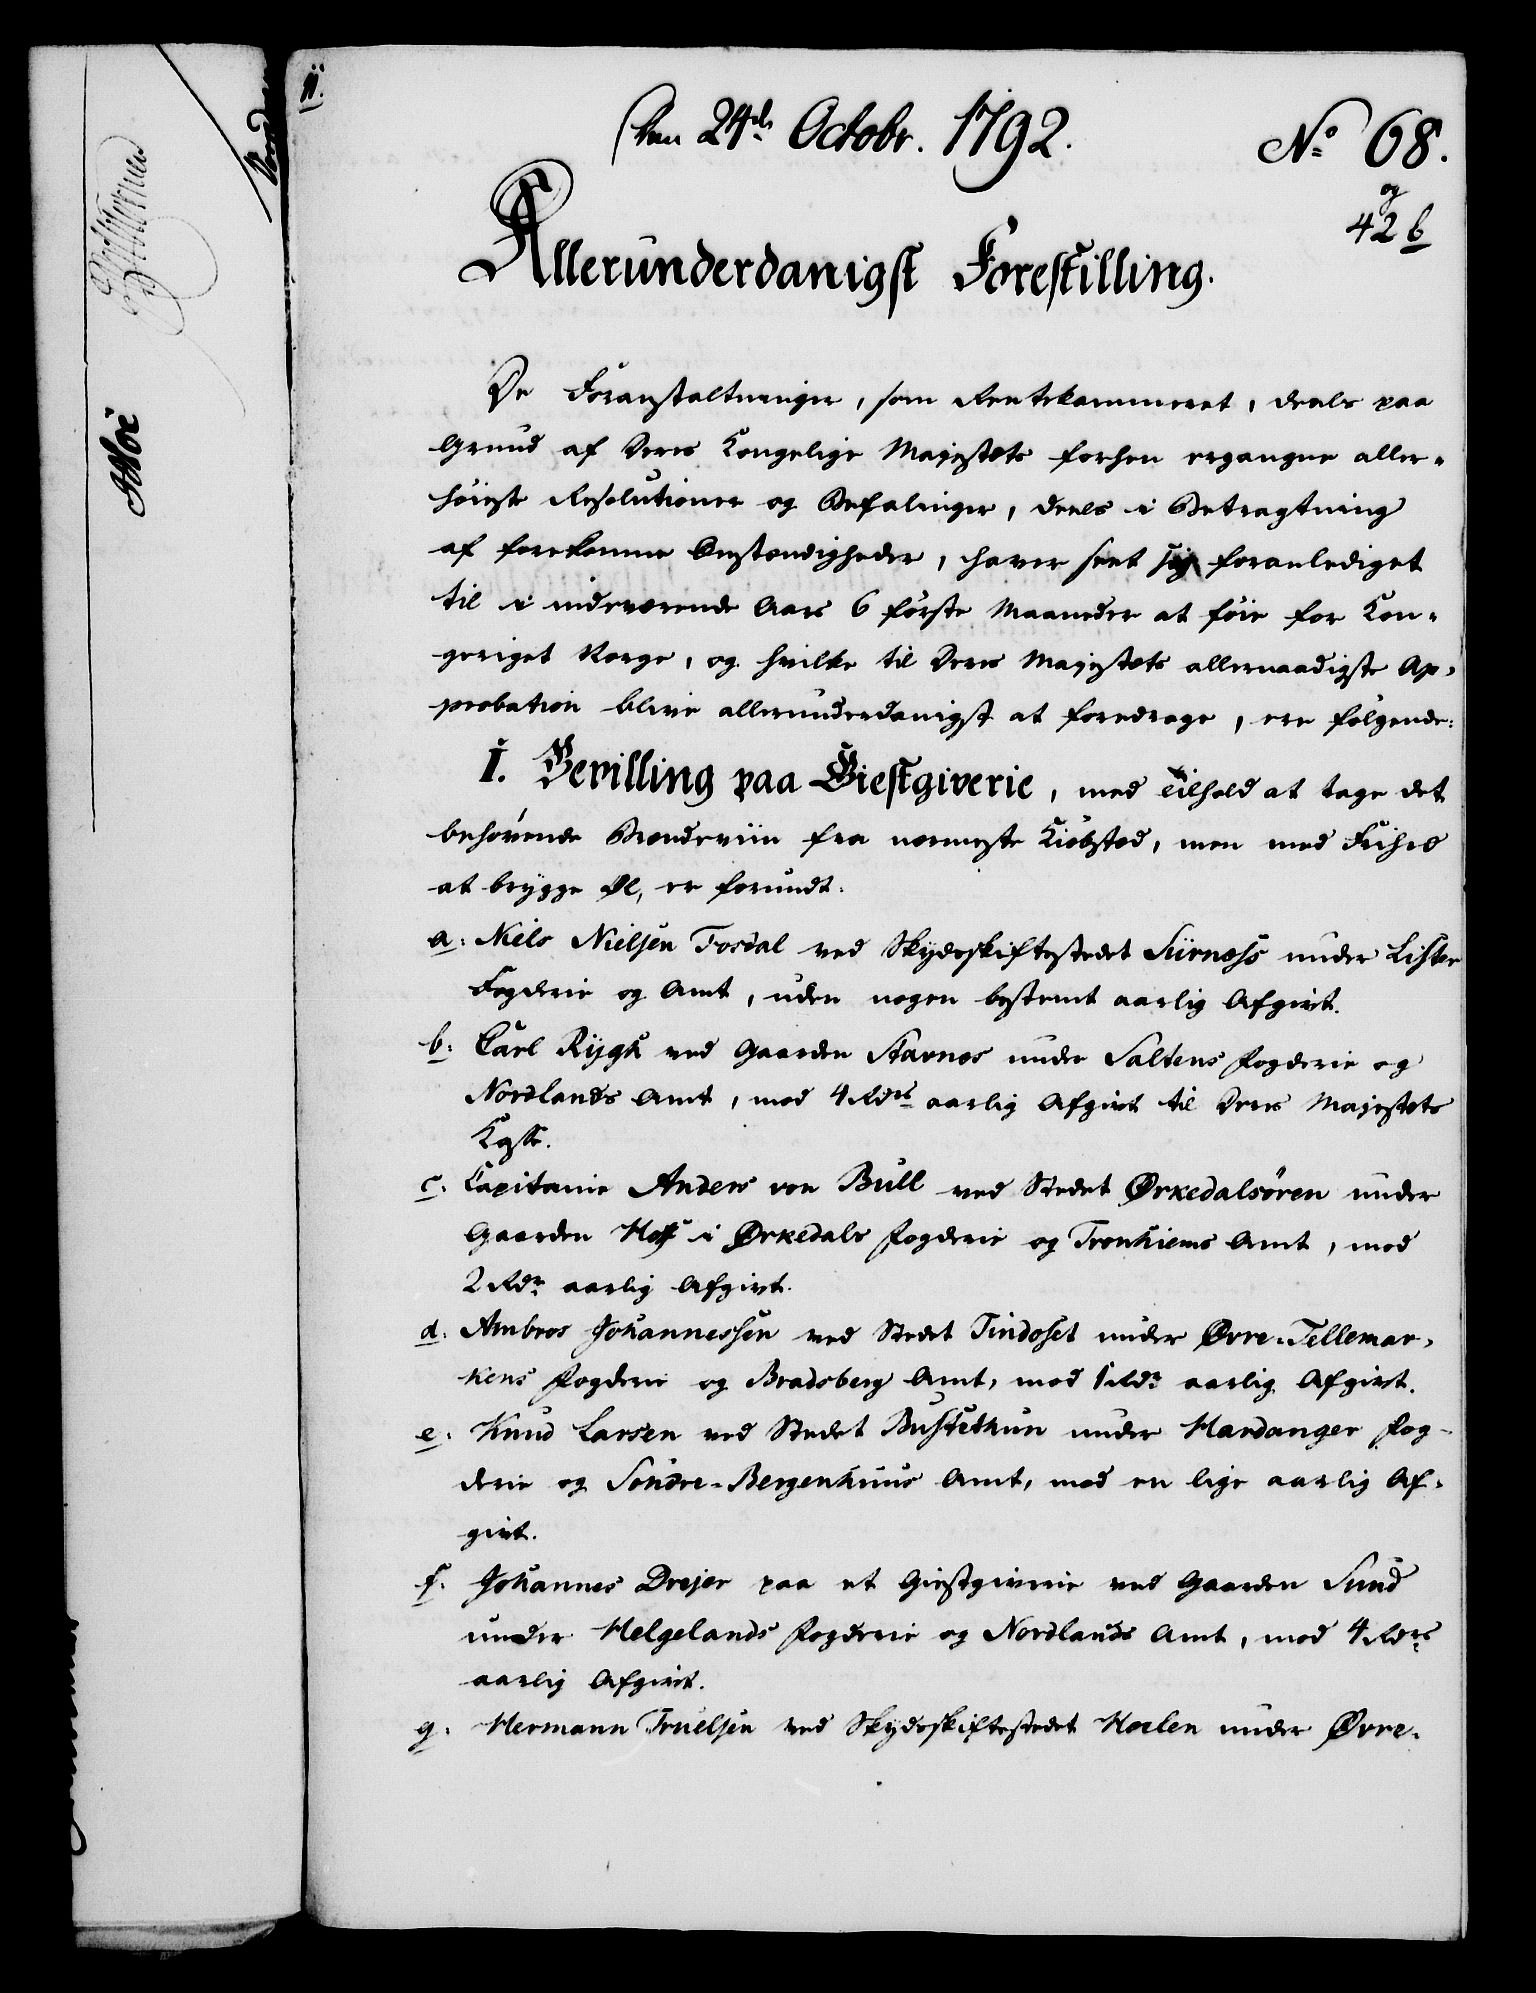 Den 24de Octobr. 1792.
No 68.
og
42 b
Allerunderdanigst Forestilling.
De Foranstaltninger, som Rentekammeret, deels paa
Grund af Deres Kongelige Majestæts forhen ergangne aller-
høieste Resolutioner og Befalinger, deels i Betragtning
af forekomne Omstændigheder, haver seet sig foranlediget
til i indeværende Aars 6 første Maaneder at føie for Kon-
geriget Norge, og hvilke til Deres Majestæts allernaadigste Ap-
probation blive allerunderdanigst at foredrage, ere følgende:
I. Bevilling paa Giestgiverie, med Tilhold at tage det
behøvende Brændeviin fra nærmeste Kiøbstæd, men med Frihed
at brygge Øl, er forundt:
a. Niels Nielsen Fosdal ved Skydsskiftestedet Siirnæss under Lister
Fogderie og Amt, uden nogen bestemt aarlig Afgivt.
b. Carl Rÿgh ved Gaarden Stavnes under Saltens Fogderie og
Nordlands Amt, mod 4 Rdrs aarlig Afgivt til Deres Majestæts
Kasse.
c. Capitaine Anders von Bull ved Stedet Ørkedalsøren under
Gaarden Hoff i Ørkedals Fogderie og Tronhiems Amt, mod
2 Rdr aarlig Afgivt.
d. Ambros Johannessen ved Stedet Tindoset under Øvre-Tellemar-
kens Fogderie og Bradsberg Amt, mod 1 Rdr aarlig Afgivt.
e. Knud Larsen ved Stedet Bustethun under Hardanger Fog-
derie og Søndre-Bergenhuus Amt, mod en lige aarlig Af-
givt.
f. Johannes Drejer paa et Giestgiverie ved Gaarden Sund
under Helgelands Fogderie og Nordlands Amt, mod 4 Rdrs
aarlig Afgivt.
g. Hermann Truelsen ved Skydsskiftestedet Holen under Øvre-